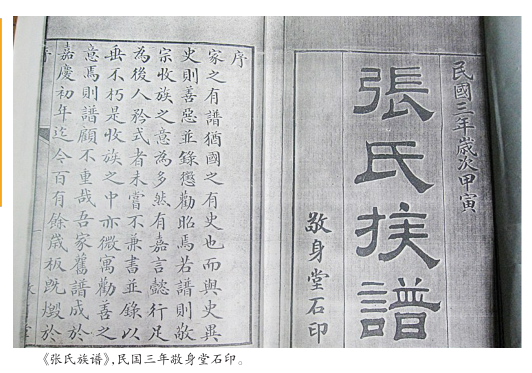 民國三年歲次甲寅
張氏族譜
敬身堂石印
序
家之有譜猶國之有史也而與史異
史則善惡並錄懲勸昭焉若譜則敬
宗收族之意為多然有嘉言懿行足
為後人矜式者未嘗不兼書並錄以
垂不朽是收族之中亦微寓勸善之
意焉則譜顧不重哉吾家舊譜成於
嘉慶初年迄今百有餘歲板既燬於
《张氏族谱》,民国三年敬身堂石印。